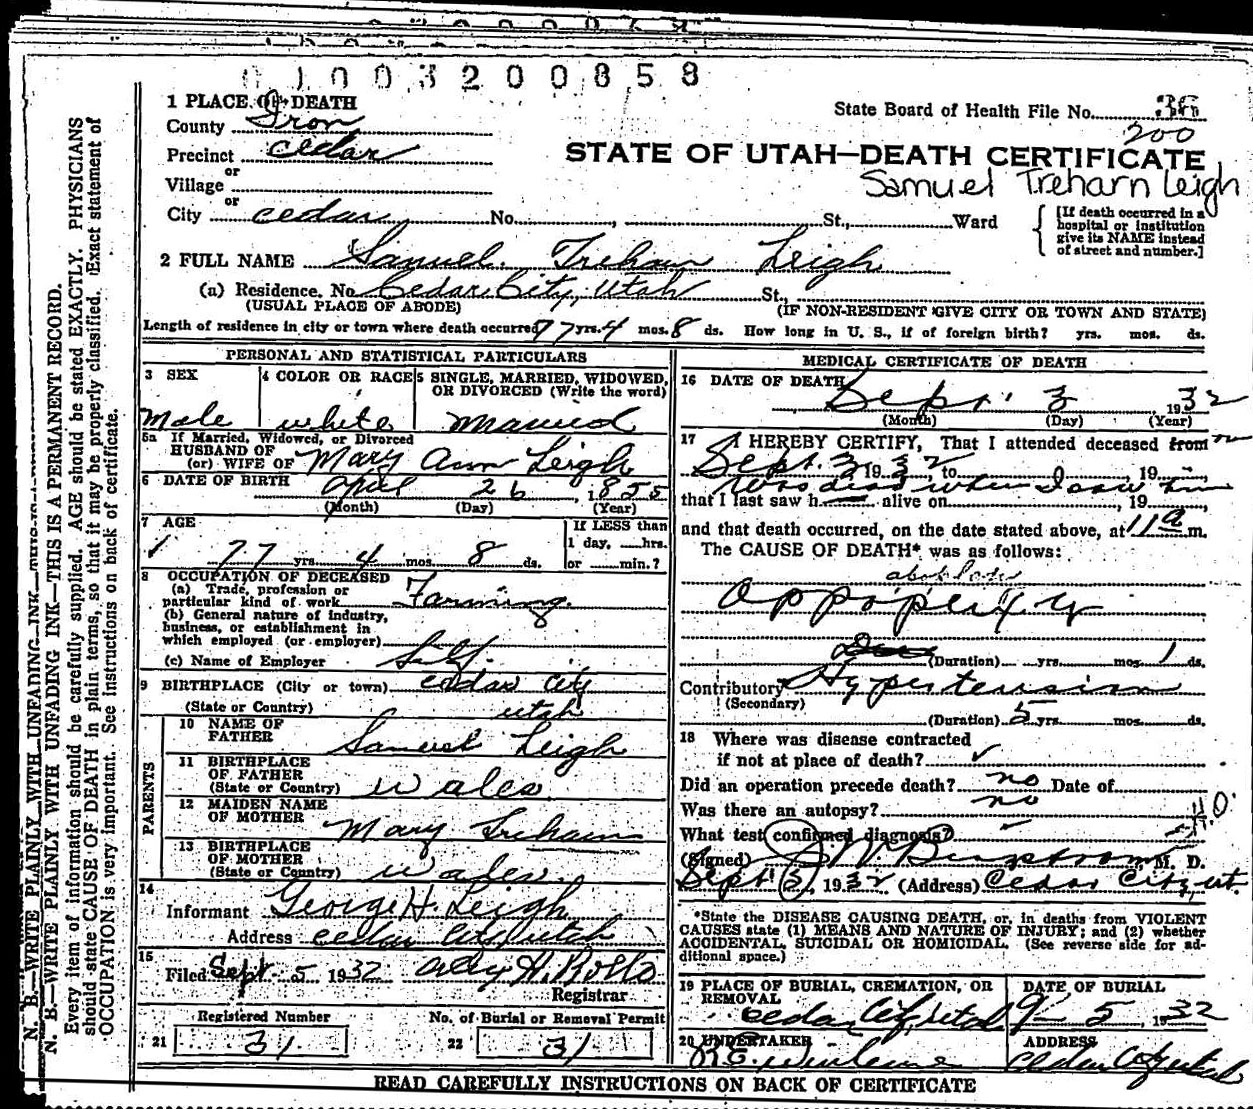 0100320065 8
1 PLACE OF DEATH
State Board of Health File No. 36
County Iron
200
Precinct Cedar
STATE OF UTAH—DEATH CERTIFICATE
or
Samuel Treharn Leigh
Village
or
City Cedar No. , St., Ward
[If death occurred in a hospital or institution give its NAME instead of street and number.]
2 FULL NAME Samuel Treharn Leigh
(a) Residence. No. Cedar City, Utah St.,
(USUAL PLACE OF ABODE) (IF NON-RESIDENT GIVE CITY OR TOWN AND STATE)
Length of residence in city or town where death occurred 77 yrs. 4 mos. 8 ds. How long in U. S., if of foreign birth? yrs. mos. ds.
PERSONAL AND STATISTICAL PARTICULARS
3 SEX
Male
4 COLOR OR RACE
white
5 SINGLE, MARRIED, WIDOWED, OR DIVORCED (Write the word)
Married
5a If Married, Widowed, or Divorced
HUSBAND OF
(or) WIFE OF Mary Ann Leigh
6 DATE OF BIRTH April 26, 1855
(Month) (Day) (Year)
7 AGE
77 yrs. 4 mos. 8 ds.
If LESS than
1 day, hrs.
or min.?
8 OCCUPATION OF DECEASED
(a) Trade, profession or
particular kind of work Farming
(b) General nature of industry,
business, or establishment in
which employed (or employer)
(c) Name of Employer Self
9 BIRTHPLACE (City or town) Cedar City
(State or Country) Utah
PARENTS
10 NAME OF
FATHER Samuel Leigh
11 BIRTHPLACE
OF FATHER
(State or Country) Wales
12 MAIDEN NAME
OF MOTHER Mary Treharn
13 BIRTHPLACE
OF MOTHER
(State or Country) Wales
14
Informant George H. Leigh
Address Cedar City, Utah
15
Filed Sept. 5 1932
Registrar
Registered Number
21 31
No. of Burial or Removal Permit
22 31
MEDICAL CERTIFICATE OF DEATH
16 DATE OF DEATH
Sept. 3 1932
(Month) (Day) (Year)
17 I HEREBY CERTIFY, That I attended deceased from on
Sept. 3 1932 to , 19
Was dead when I saw him
that I last saw h alive on , 19
and that death occurred, on the date stated above, at 11 a m.
The CAUSE OF DEATH* was as follows:
Appoplexy
(Duration) yrs. mos. 1 ds.
Contributory Hypertension
(Secondary)
(Duration) 5 yrs. mos. ds.
18 Where was disease contracted
if not at place of death? ✓
Did an operation precede death? no Date of
Was there an autopsy? no
What test confirmed diagnosis?
H.O.
(Signed) M. D.
Sept. 3, 1932 (Address) Cedar City, Ut
*State the DISEASE CAUSING DEATH, or, in deaths from VIOLENT
CAUSES state (1) MEANS AND NATURE OF INJURY; and (2) whether
ACCIDENTAL, SUICIDAL OR HOMICIDAL. (See reverse side for ad-
ditional space.)
19 PLACE OF BURIAL, CREMATION, OR
REMOVAL
Cedar City, Utah
DATE OF BURIAL
9-5 1932
20 UNDERTAKER
ADDRESS
Cedar City Utah
READ CAREFULLY INSTRUCTIONS ON BACK OF CERTIFICATE
N. B.—WRITE PLAINLY WITH UNFADING INK
N. B.—WRITE PLAINLY WITH UNFADING INK—THIS IS A PERMANENT RECORD.
Every item of information should be carefully supplied. AGE should be stated EXACTLY. PHYSICIANS
should state CAUSE OF DEATH in plain terms, so that it may be properly classified. Exact statement of
OCCUPATION is very important. See instructions on back of certificate.